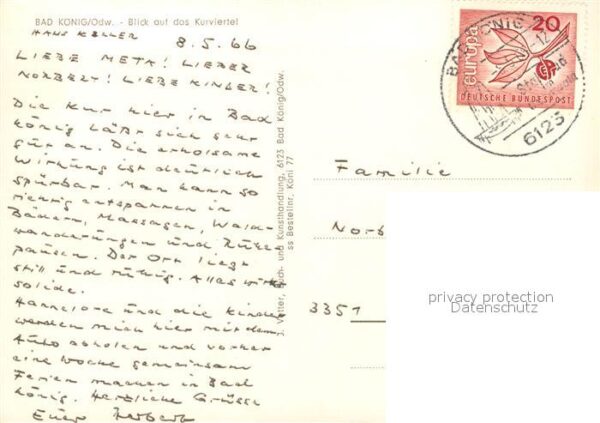 BAD KÖNIG/Odw. - Blick auf das Kurviertel
HANS KELLER
8.5.66
LIEBE META! LIEBER
NORBERT! LIEBE KINDER!
Die Kur hier in Bad
König läßt sich sehr
gut an. Die erholsame
Wirkung ist deutlich
spürbar. Man kann so
richtig entspannen in
Bädern, Massagen, Wald-
wanderungen und Ruhe-
pausen. Der Ort liegt
still und ruhig. Alles wirkt
solide.
Hannelore und die Kinder
werden mich hier mit dem
Auto abholen und vorher
eine Woche gemeinsam
Ferien machen in Bad
König. Herzliche Grüsse
Euer Herbert
J. Vetter, Buch- und Kunsthandlung, 6123 Bad König/Odw.
ss Bestellnr. Köni 77
europa
20
CEPT
DEUTSCHE BUNDESPOST
BAD KÖNIG
6123
Familie
Norb
3351
privacy protection
Datenschutz